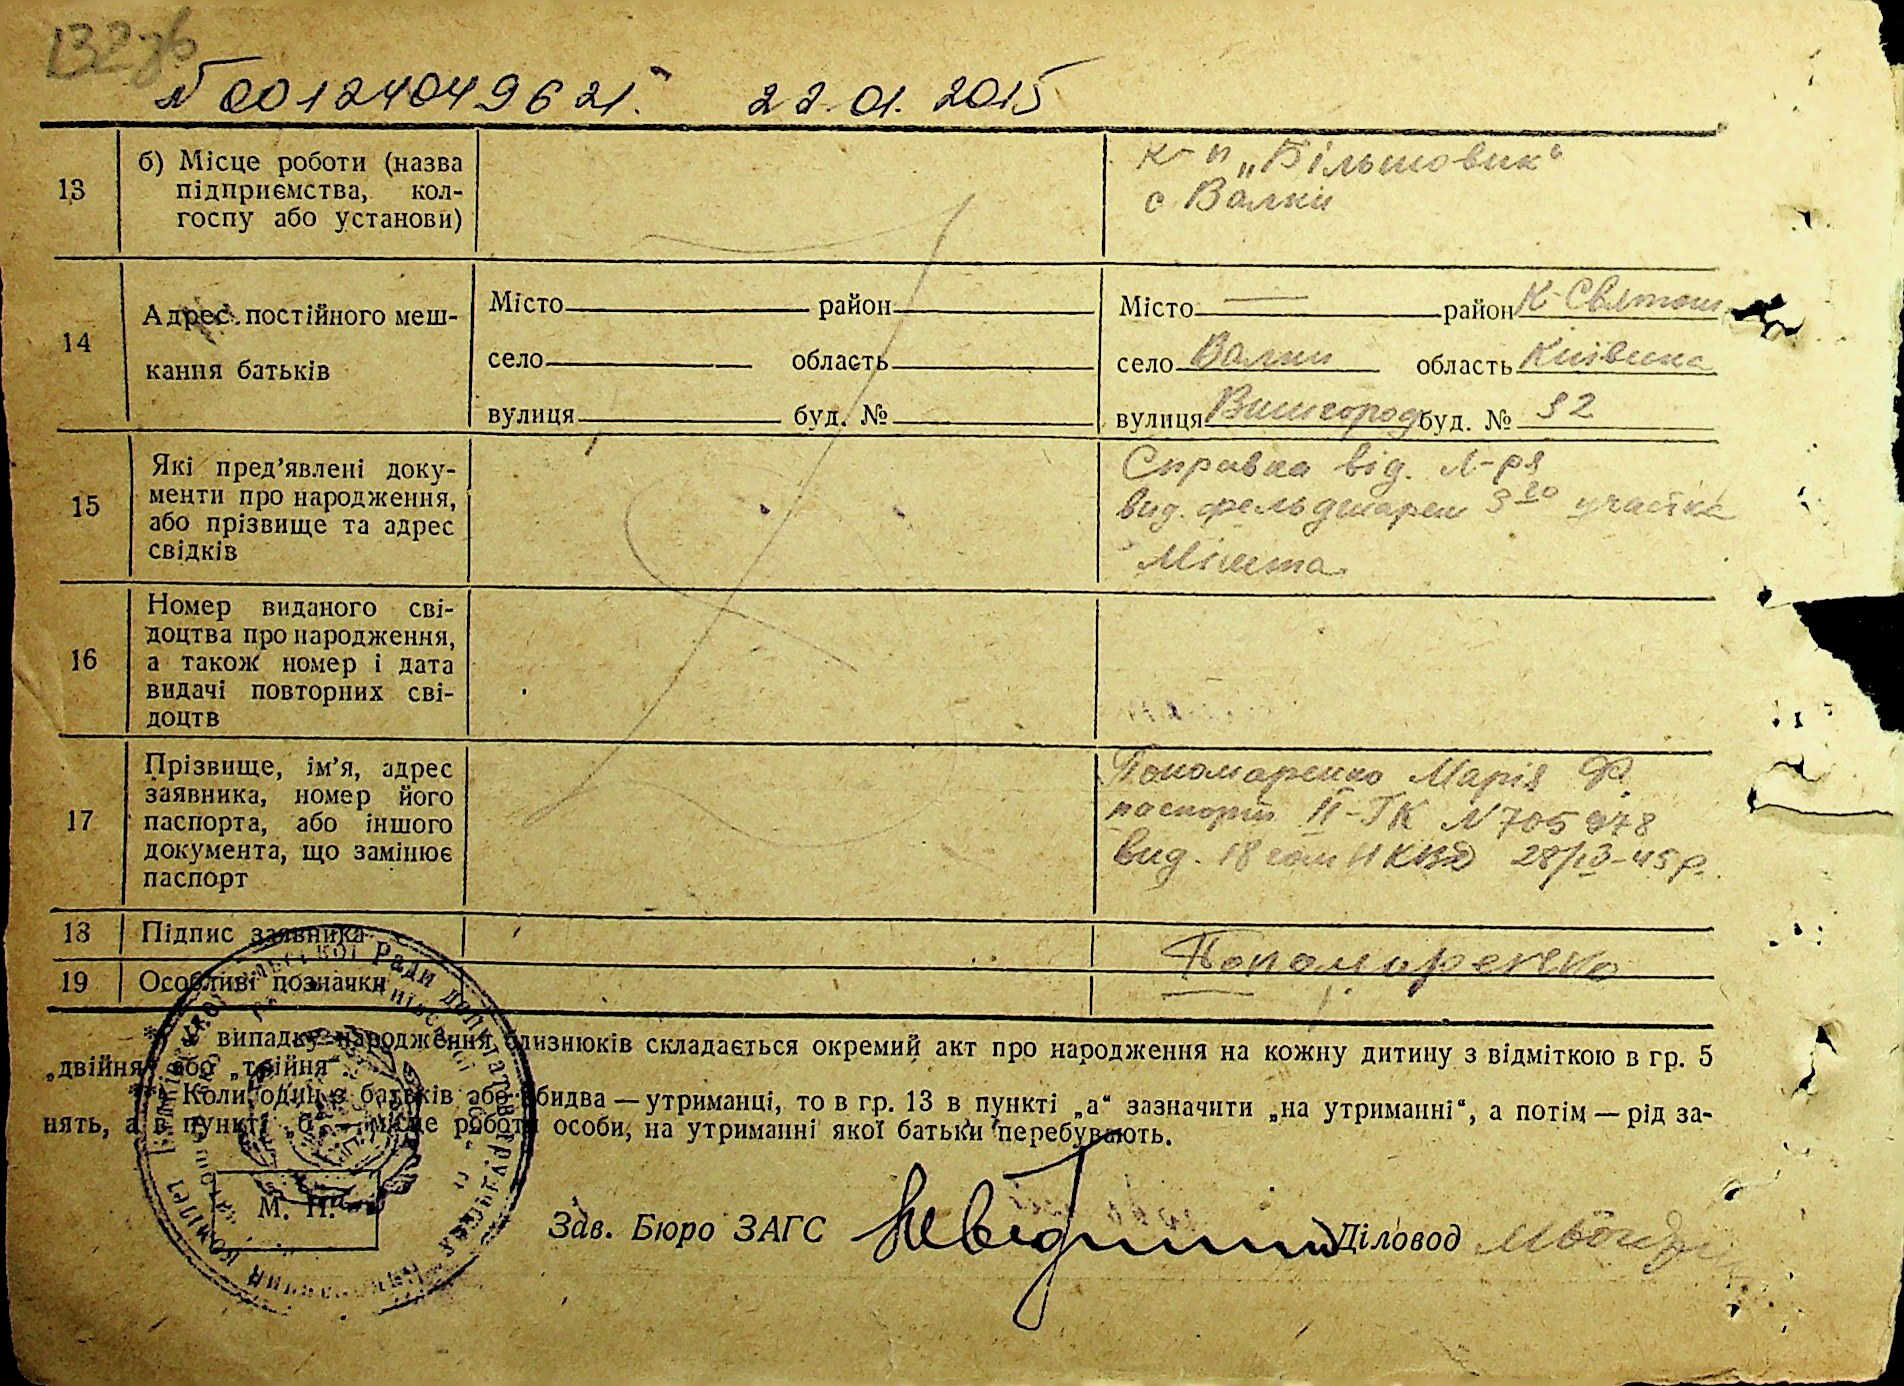 132зв
N00124049621. 22.01.2015
13 б) Місце роботи (назва
підприємства, кол-
госпу або установи)
к-п „Більшовик“
с Валки
14 Адрес постійного меш-
кання батьків
Місто район
село область
вулиця буд. №
Місто — район К-Святош
село Валки область Київська
вулиця Вишгород буд. № 32
15 Які пред’явлені доку-
менти про народження,
або прізвище та адрес
свідків
Справка від. л-ря
вид. фельдшарем участка
16 Номер виданого сві-
доцтва про народження,
а також номер і дата
видачі повторних сві-
доцтв
17 Прізвище, ім’я, адрес
заявника, номер його
паспорта, або іншого
документа, що замінює
паспорт
Пономаренко Марія Ф.
паспорт II-ГК N 705948
вид. 18 НКВД 45р.
18 Підпис заявника
Пономаренко
19 Особливі позначки
* У випадку народження близнюків складається окремий акт про народження на кожну дитину з відміткою в гр. 5
„двійня“ або „трійня“.
** Коли один з батьків або обидва — утриманці, то в гр. 13 в пункті „а“ зазначити „на утриманні“, а потім — рід за-
нять, а в пункті „б“ — місце роботи особи, на утриманні якої батьки перебувають.
М. П.
Зав. Бюро ЗАГС Діловод
Ради депутатів трудящих
комітет